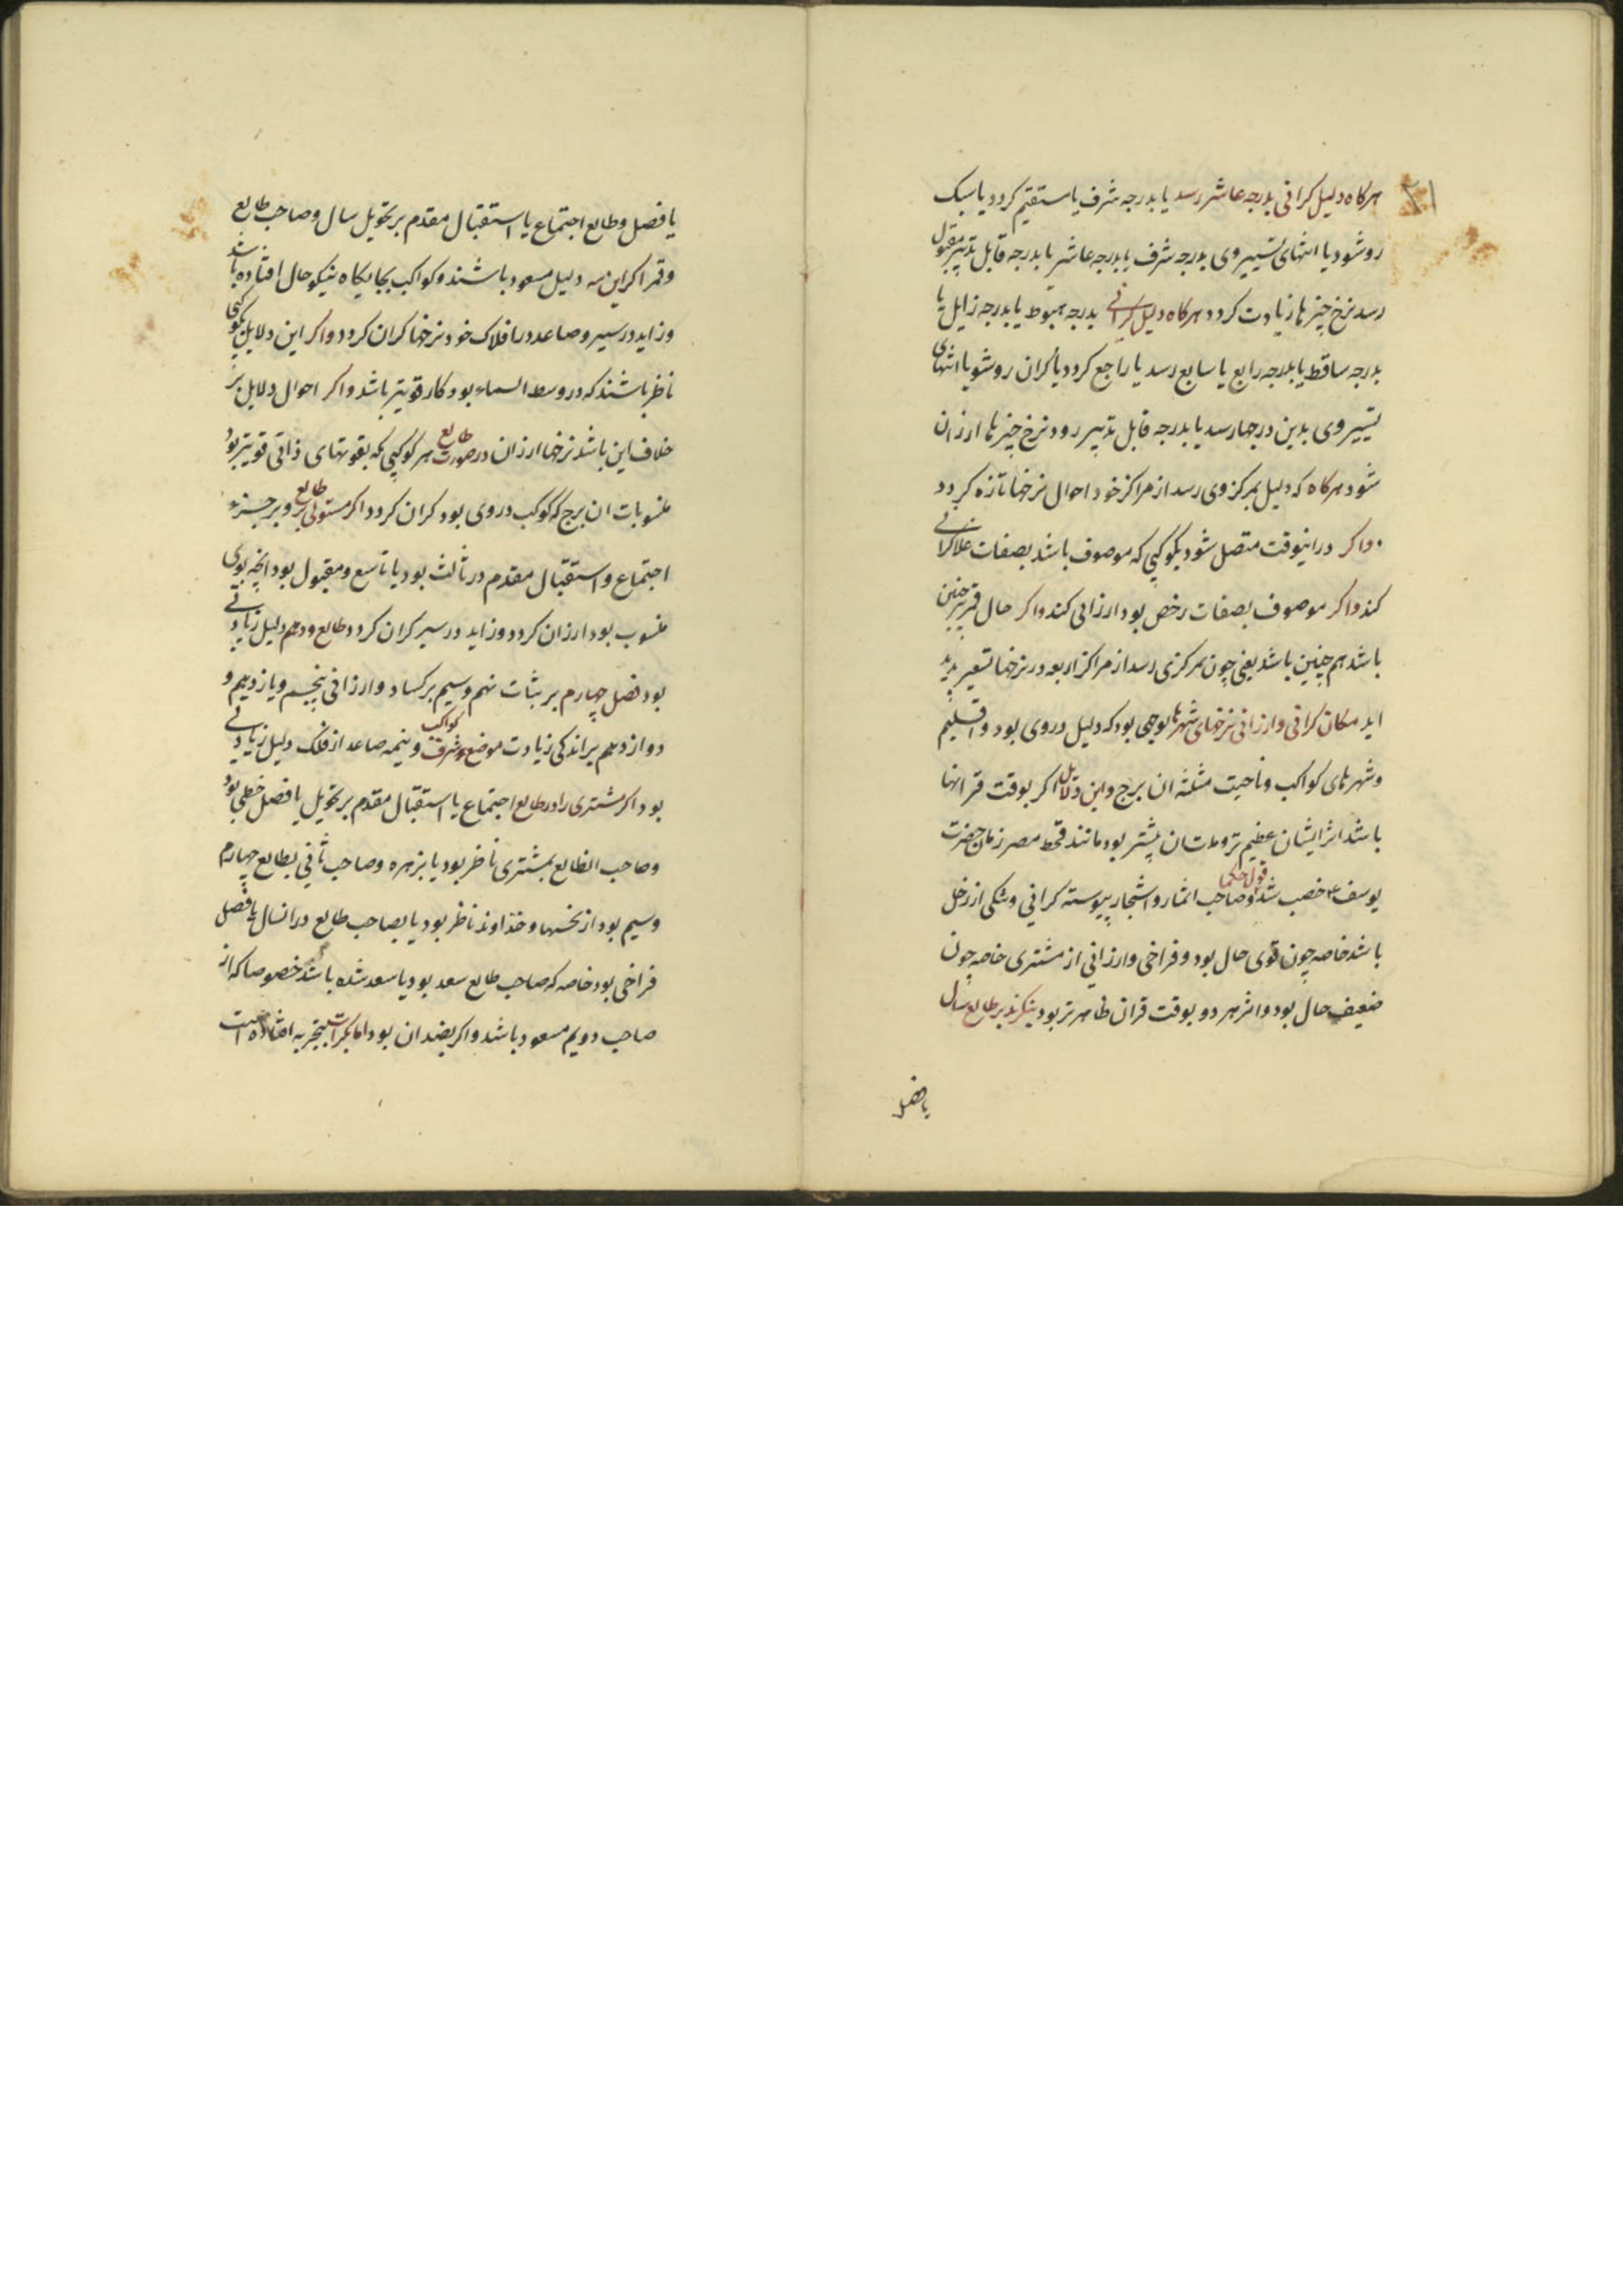 ۲۱
هرکاه دلیل کرانی بدرجه عاشر رسد یا بدرجه شرف یا مستقیم کردد یا سبک
رو شود یا انتهای تسییر وی بدرجه شرف یا بدرجه عاشر یا بدرجه قابل تدبیر مقبول
رسد نرخ چیزها زیادت کردد هرکاه دلیل کرانی بدرجه هبوط یا بدرجه زایل یا
بدرجه ساقط یا بدرجه رابع یا سابع رسد یا راجع کردد یا کران رو شود یا انتهای
تسییر وی بدین درجها رسد یا بدرجه قابل تدبیر رود نرخ چیزها ارزان
شود هرکاه که دلیل بمرکز وی رسد از مراکز خود احوال نرخها تازه کردد
واکر در انیوقت متصل شود بکوکبی که موصوف باشد بصفات غلا کرانی
کند واکر موصوف بصفات رخص بود ارزانی کند واکر حال قمر نیز چنین
باشد هم چنین باشد یعنی چون بمرکزی رسد از مراکز اربعه در نرخها تسعیر پدید
اید مکان کرانی وارزانی نرخهای شهرها بوجهی بود که دلیل در وی بود واقلیم
وشهرهای کواکب وناحیت مثلثه ان برج واین دلایل اکر بوقت قرانها
باشد اثر ایشان عظیم تر ومدتان بیشتر بود مانند قحط مصر زمان حضرت
یوسف ع خصب شد قول حکما وصاحب اثمار واشجار پیوسته کرانی وتنکی از زحل
باشد خاصه چون قوی حال بود وفراخی وارزانی از مشتری خاصه چون
ضعیف حال بود واثر هر دو بوقت قران ظاهرتر بود بنکرند بر طالع سال
یا فصل
یا فصل وطالع اجتماع یا استقبال مقدم بر تحویل سال وصاحب طالع
وقمر اکر این سه دلیل مسعود باشند وکواکب بجایکاه نیکو حال افتاده باشد
وزاید در سیر وصاعد در افلاک خود نرخها کران کردد واکر این دلایل بکوکبی
ناظر باشند که در وسط السماء بود کار قویتر باشد واکر احوال دلایل بر
خلاف این باشد نرخها ارزان در صورت طالع هر کوکبی که بقوتهای ذاتی قویتر بود
منسوبات ان برج که کوکب در وی بود کران کردد اکر مستولی بر طالع وبر جزء
اجتماع واستقبال مقدم در ثالث بود یا تاسع ومقبول بود انچه بوی
منسوب بود ارزان کردد وزاید در سیر کران کردد طالع ودهم دلیل زیادتی
بود فصل چهارم بر ثبات نهم وسیم بر کساد وارزانی پنجم ویازدهم و
دوازدهم بر اندکی زیادت موضع شرف کواکب ونیمه صاعد از فلک دلیل زیادتی
بود اکر مشتری را در طالع اجتماع یا استقبال مقدم بر تحویل یا فصل حظی بود
وصاحب الطالع بمشتری ناظر بود یا بزهره وصاحب ثانی بطالع چهارم
وسیم بود از نحسها وخداوند ناظر بود یا بصاحب طالع در انسال یا فصل
فراخی بود خاصه که صاحب طالع سعد بود یا سعد شده باشد خصوصا که از
صاحب دویم مسعود باشد واکر بضد ان بود اما بکرات بتجربه افتاده است